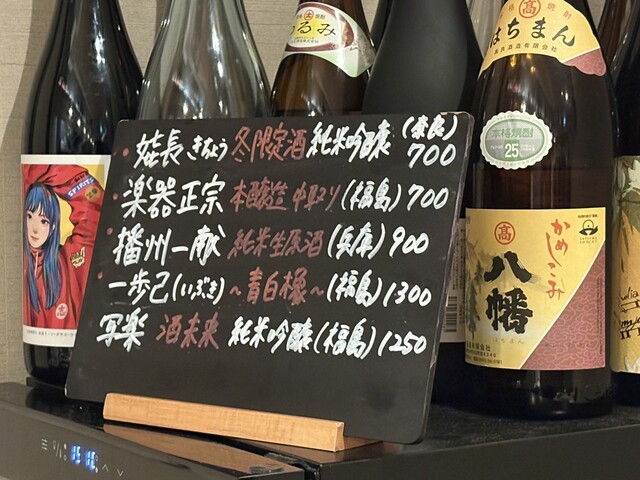 はちまん
本格焼酎
25
かめしこみ
八幡
・ 冬限定酒 純米吟醸 (奈良) 700
・楽器正宗 本醸造 中取り (福島) 700
・播州一献 純米生原酒 (兵庫) 900
・一歩己(いぶき) ~青白橡~ (福島) 1300
写楽 酒未来 純米吟醸 (福島) 1250